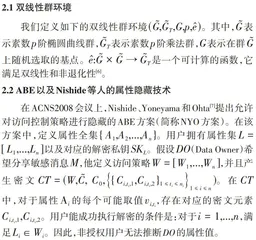 2.1 双线性群环境
我们定义如下的双线性群环境(G̃,G̃_T,G,p,ê)。其中,G̃表
示素数p阶椭圆曲线群,G̃_T表示素数p阶乘法群,G表示在群G̃
上随机选取的基点。ê:G̃×G̃→G̃_T是一个可计算的函数,它
满足双线性和非退化性[6]。
2.2 ABE以及Nishide等人的属性隐藏技术
在ACNS2008会议上,Nishide、Yoneyama和Ohta[7]提出允许
对访问控制策略进行隐藏的ABE方案(简称NYO方案)。在该
方案中,定义属性全集{A_1,A_2,...,A_n}。用户拥有属性集L=
[L_1,...,L_n]以及对应的解密私钥SK_L。假设DO(Data Owner)希
望分享敏感消息M,他定义访问策略W=[W_1,...,W_n],并且产
生密文CT=(W,C̃, C_0,{{C_{i,t_i,1},C_{i,t_i,2}}_{1≤t_i≤n_i}}_{1≤i≤n})。在CT
中,对于属性A_i的每个可能取值v_{i,t_i},存在对应的密文元素
C_{i,t_i,1},C_{i,t_i,2}。用户能成功执行解密的条件是:对于i=1,...,n,满
足L_i∈W_i。因此,非授权用户无法推断DO的属性值。